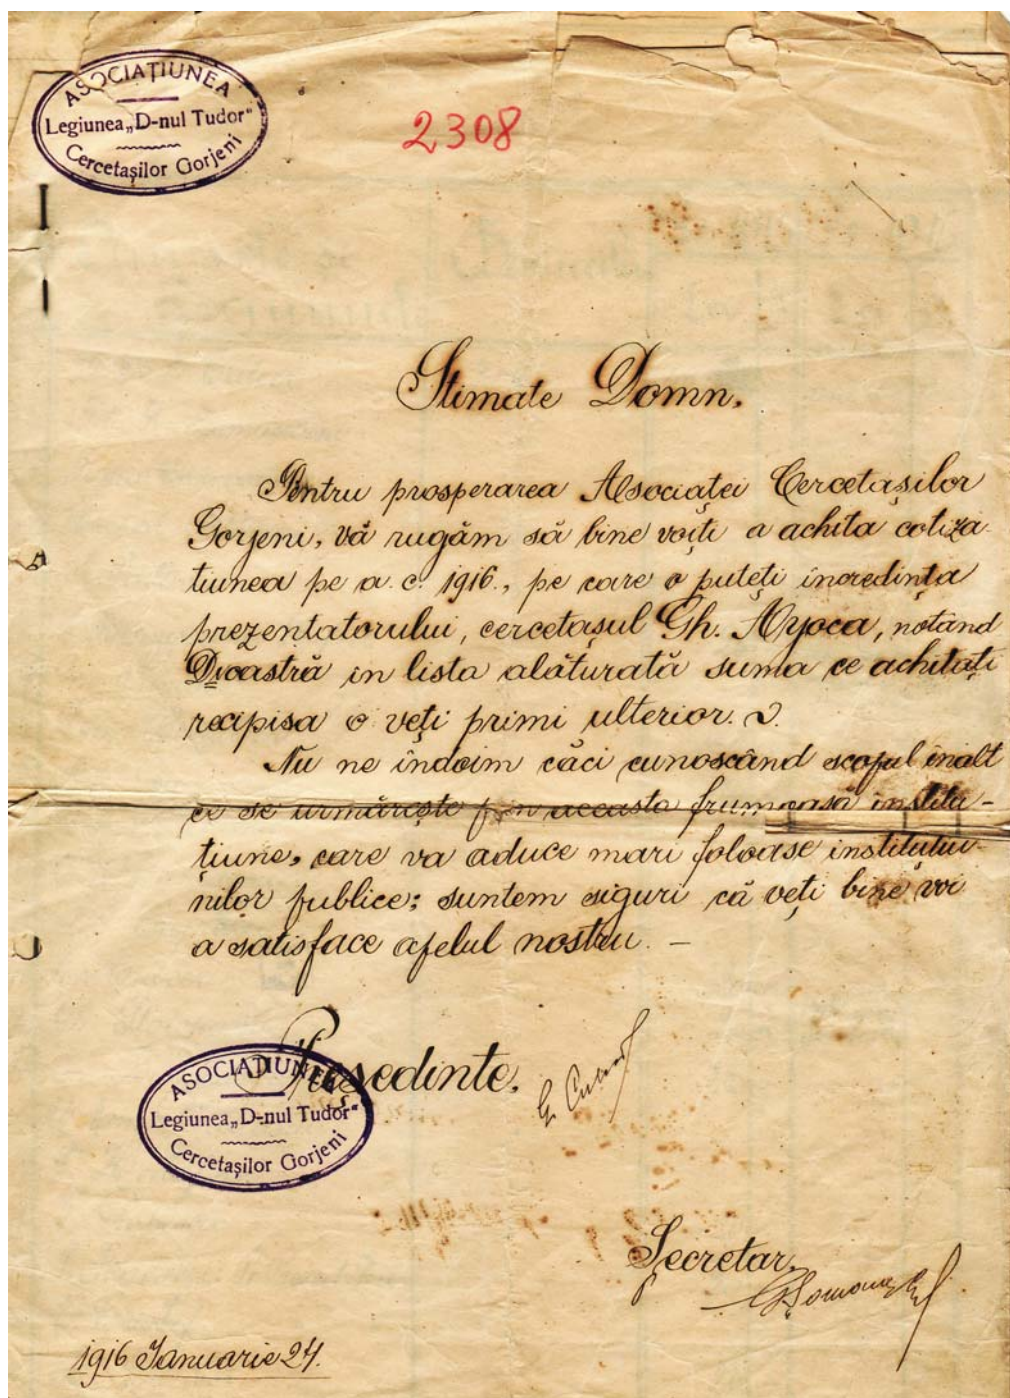 ASOCIAȚIUNEA
Legiunea „D-nul Tudor“
Cercetașilor Gorjeni
2308
Stimate Domn,
Pentru prosperarea Asociației Cercetașilor
Gorjeni, vă rugăm să bine voiți a achita cotiza-
tiunea pe a. c. 1916., pe care o puteți încredința
prezentatorului, cercetașul Gh. notând
Dvoastră in lista alăturată suma ce achitați
recipisa o veți primi ulterior.
Nu ne îndoim căci cunoscând scopul înalt
ce se urmărește prin aceasta frumoasă institu-
țiune, care va aduce mari foloase instituțiu-
nilor publice; suntem siguri că veți bine voi
a satisface apelul nostru. —
Președinte,
ASOCIAȚIUNEA
Legiunea „D-nul Tudor“
Cercetașilor Gorjeni
Secretar,
1916 Ianuarie 24.